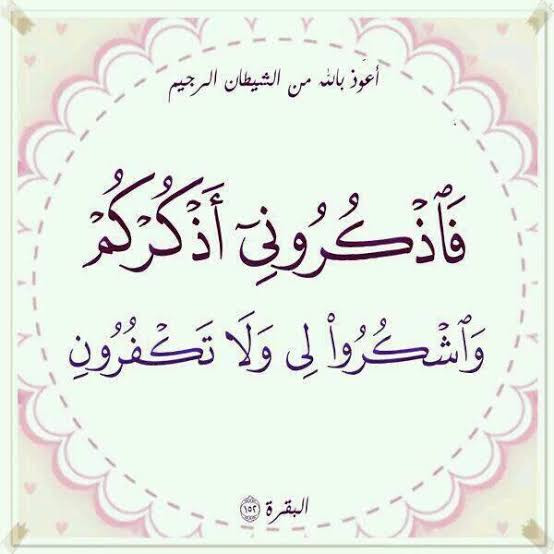 أعوذ بالله من الشيطان الرجيم
فَٱذْكُرُونِىٓ أَذْكُرْكُمْ
وَٱشْكُرُوا۟ لِى وَلَا تَكْفُرُونِ
البقرة ١٥٢